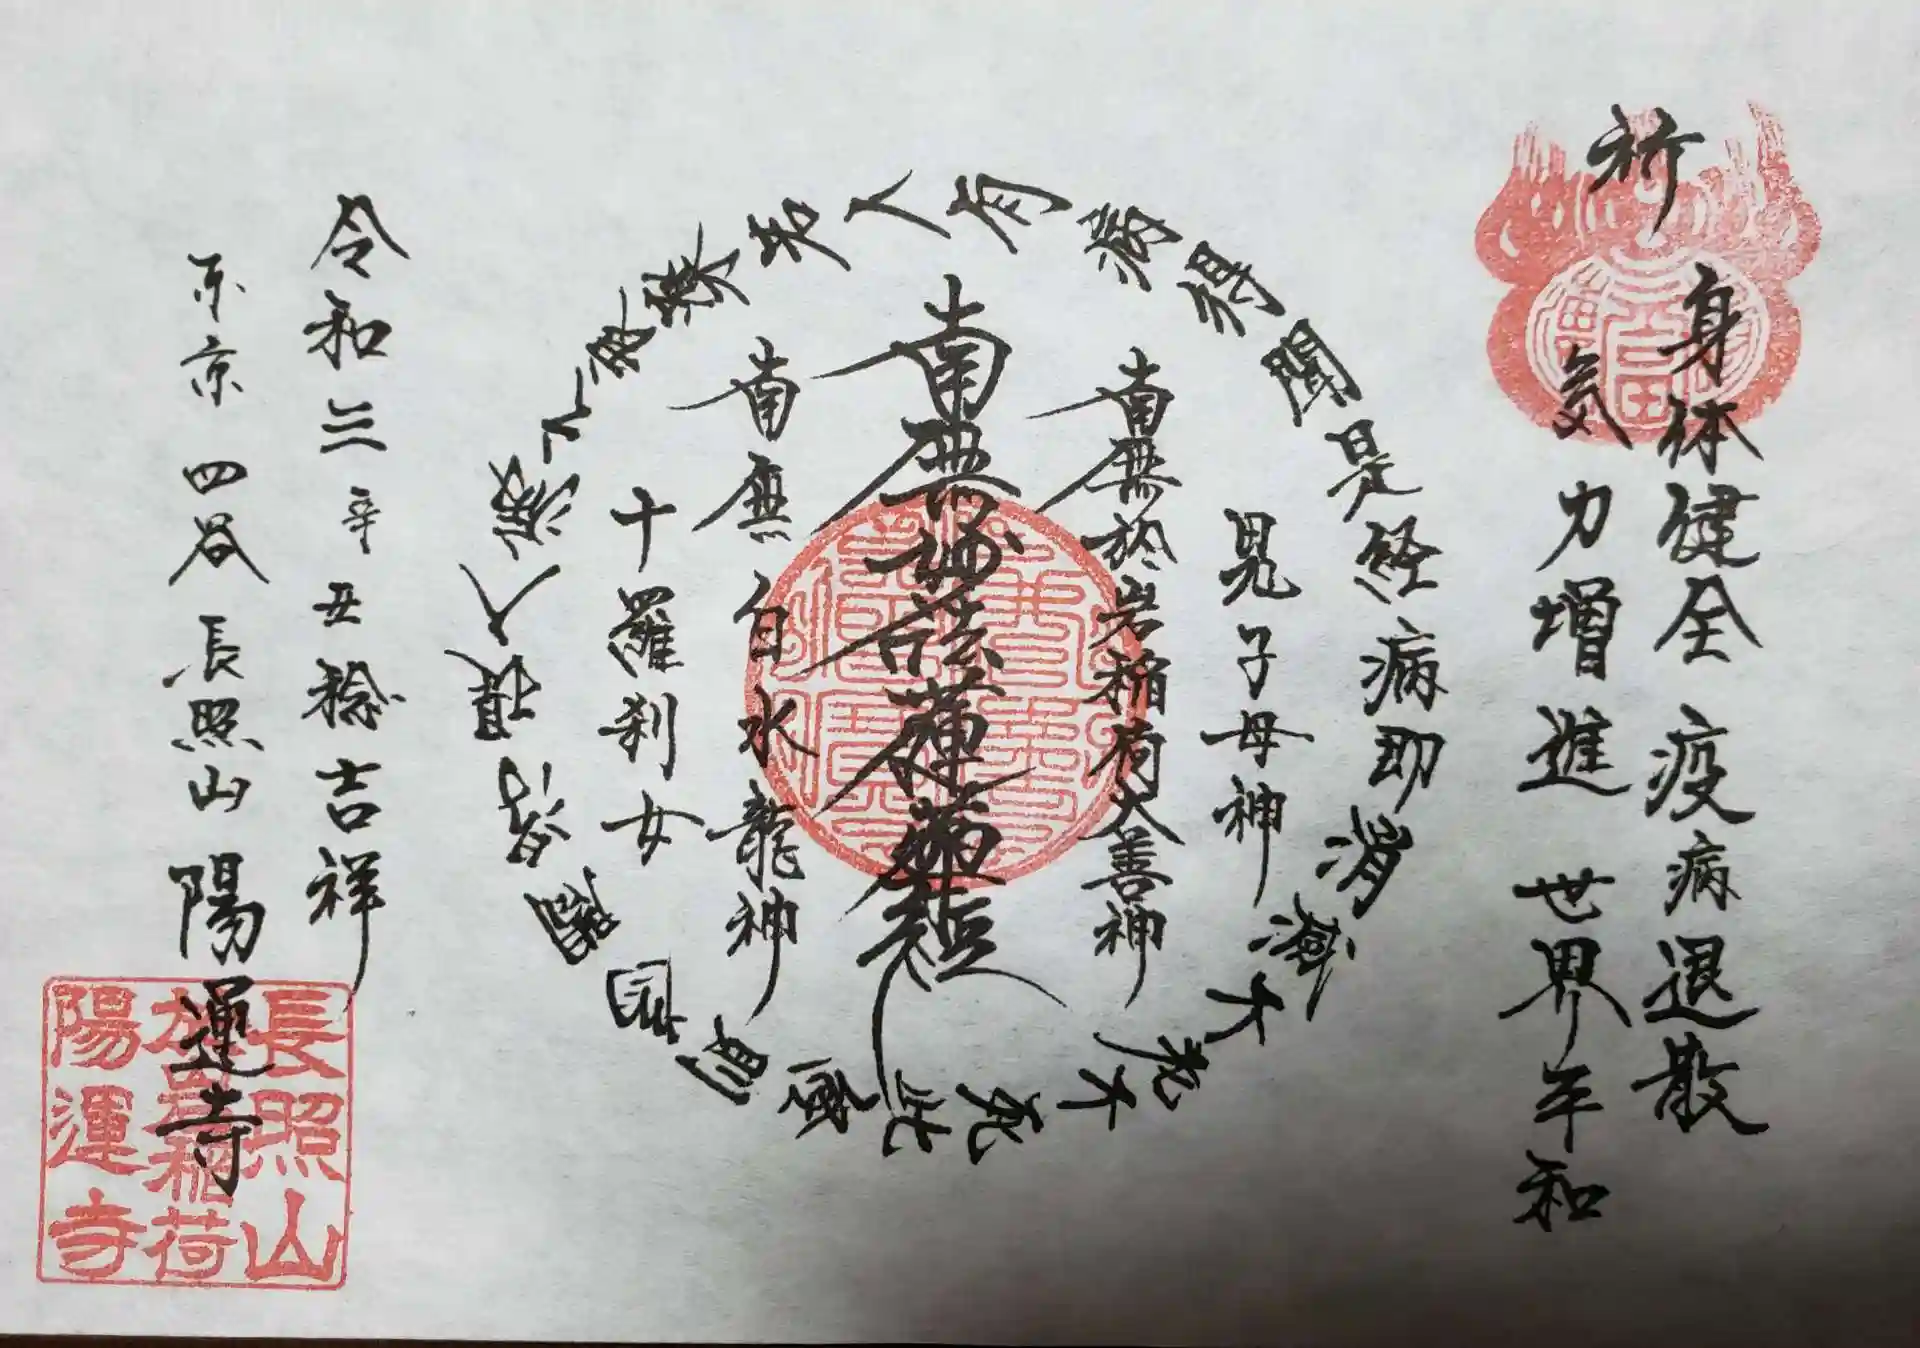 祈
身体健全 疫病退散
気力増進 世界平和
此経則為閻浮提人病之良薬若人有病得聞是経病即消滅不老不死
鬼子母神
南無於岩稲荷大善神
南無妙法蓮華経
南無白水龍神
十羅刹女
令和三辛丑稔吉祥
東京四谷長照山陽運寺
長照山
於岩稲荷
陽運寺